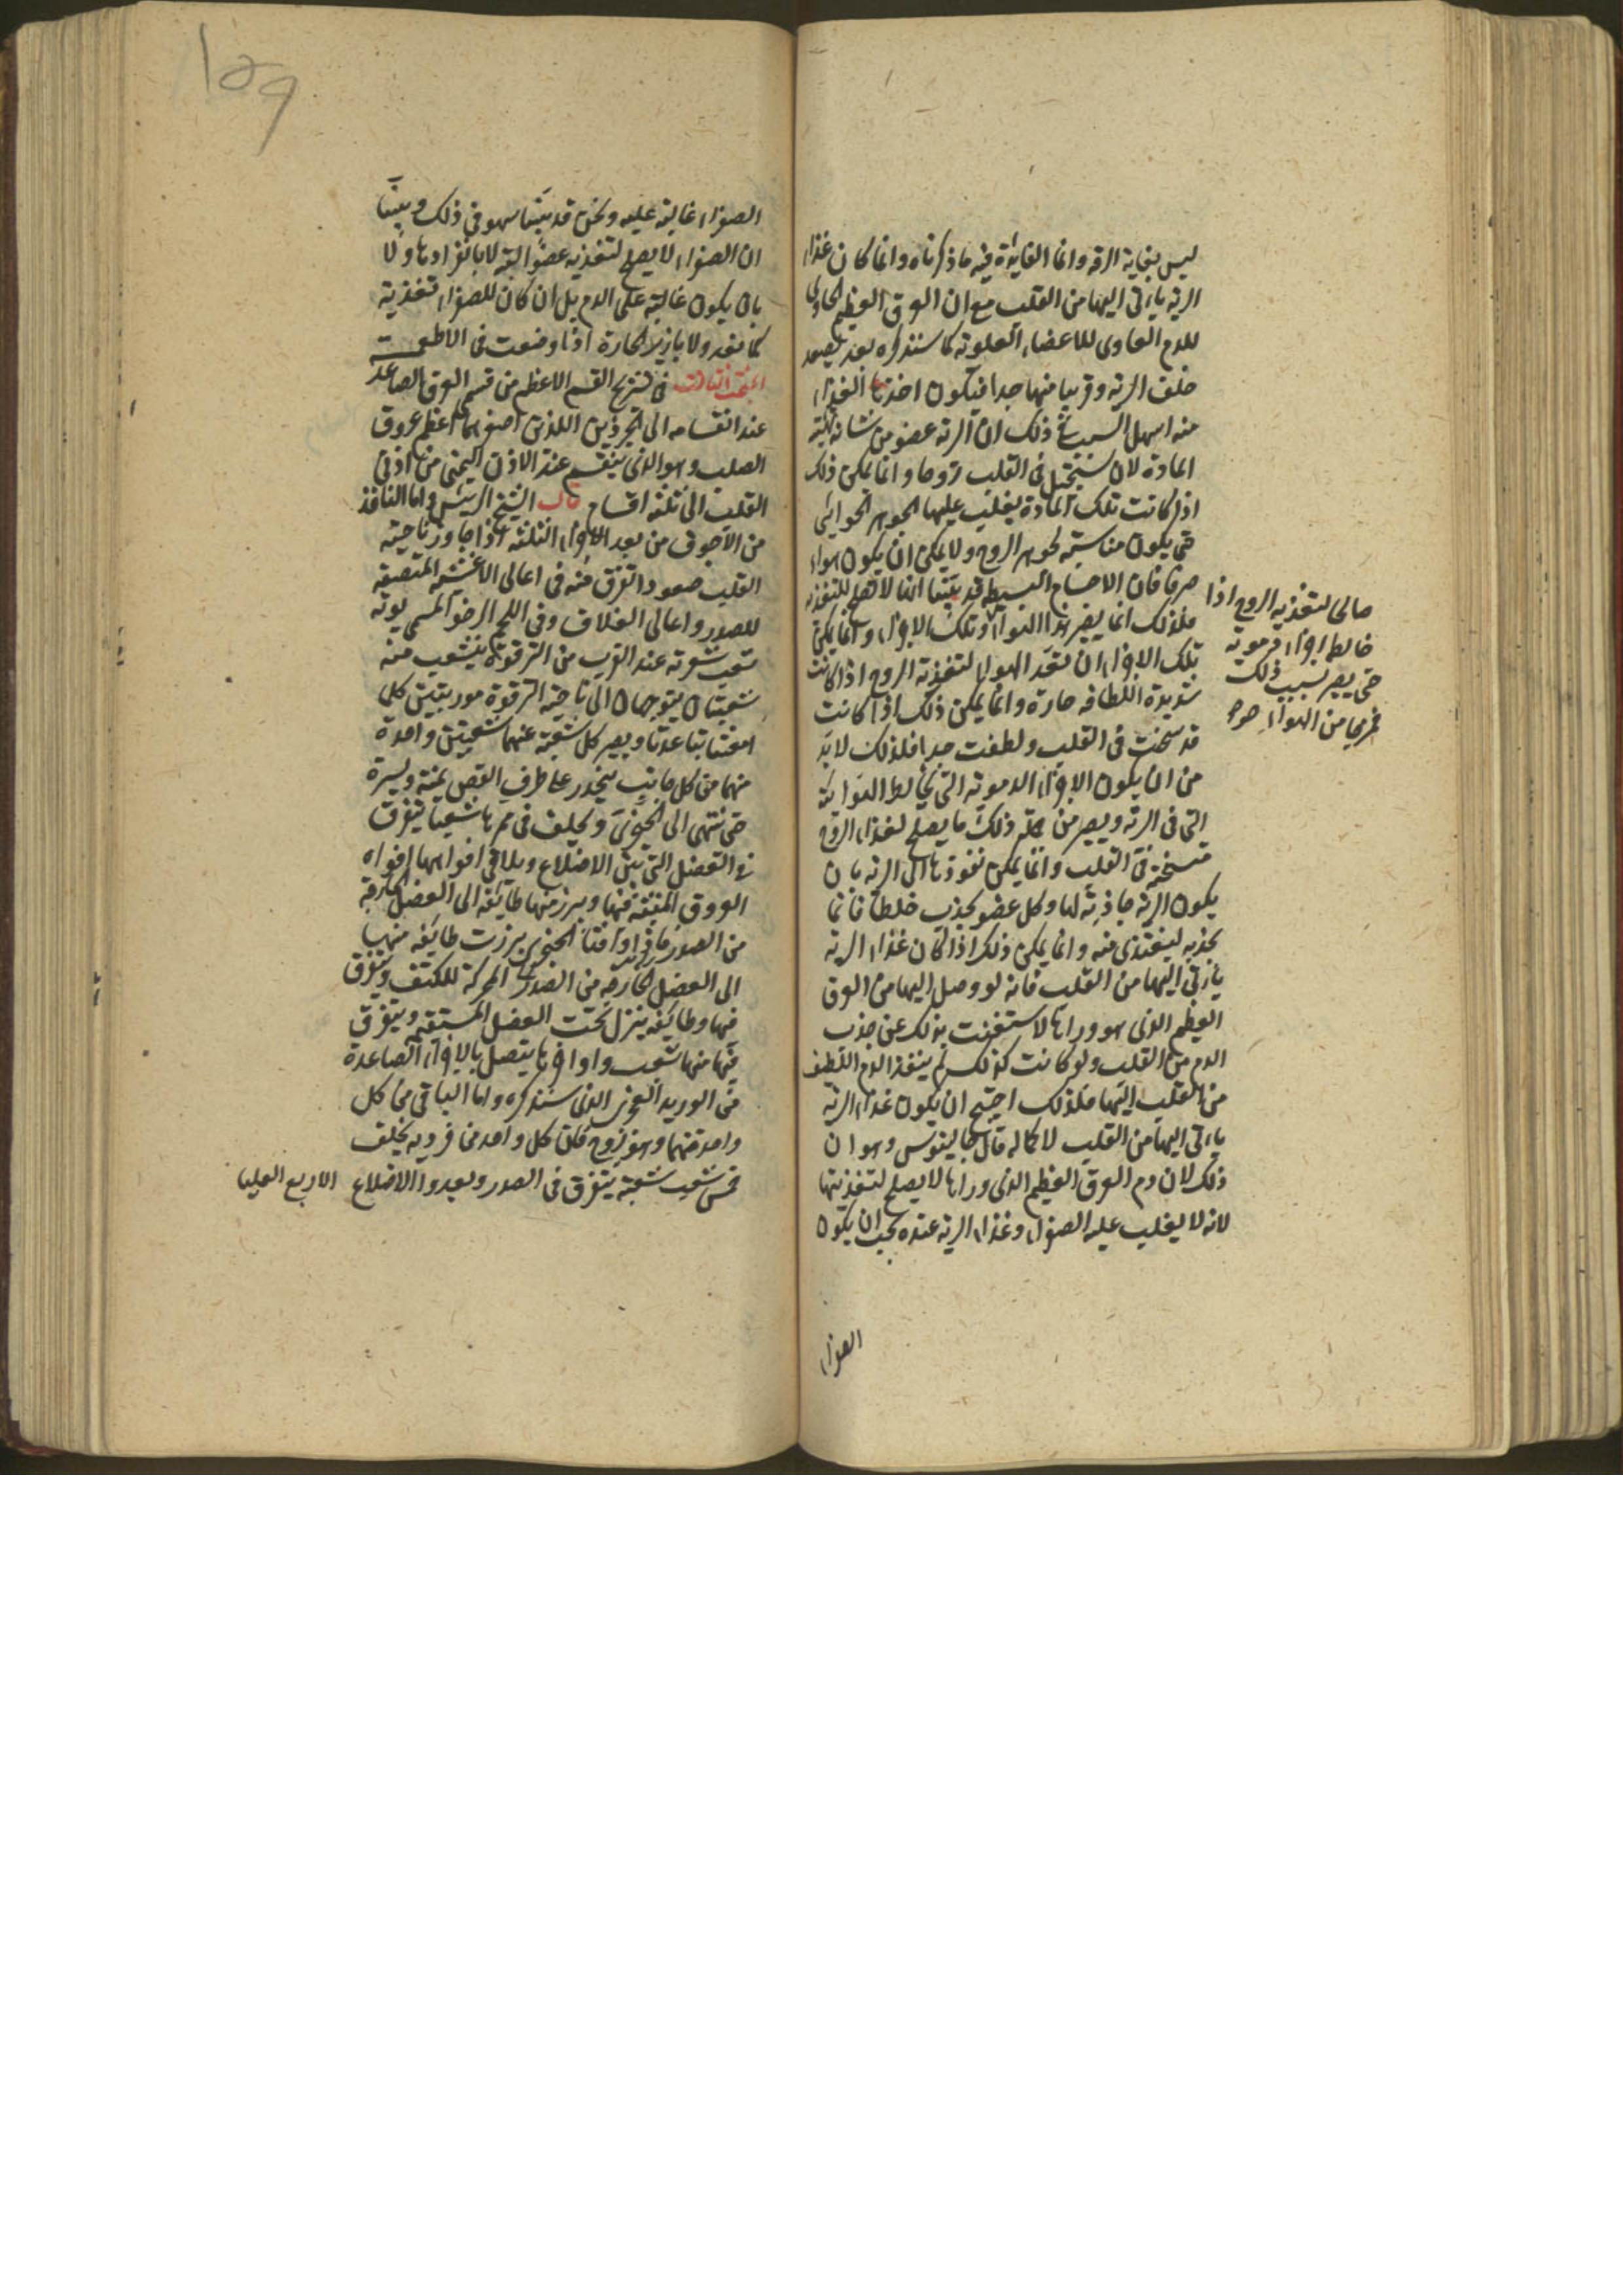 ليس بغاية الرقه وانما الفايدة فيه ما ذكرناه وانما كان غذاء
الريه ياتى اليها من القلب مع ان العرق العظيم الحاوى
للدم الغاذى للاعضاء العلويه كما سنذكره بعد يصعد
خلف الريه وقريبا منها جدا فيكون اخذها الغذاء
منه اسهل السبب فى ذلك ان الريه عضو من شانه تهيئة
المادة لان تستحيل فى القلب روحا وانما يمكن ذلك
اذا كانت تلك المادة يغلب عليها الجوهر الهوائى
حتى يكون مناسبة لجوهر الروح ولا يمكن ان يكون هواء
صرفا فان الاجسام البسيطة قد بينا انها لا تصلح للتغذيه
فلذلك انما يصير هذا الهواء وتلك الاجزاء وانما يمكن
تلك الاجزاء ان تعد الهواء لتغذية الروح اذا كانت
شديدة اللطافه حارة وانما يمكن ذلك اذا كانت
قد سخنت فى القلب ولطفت جدا فلذلك لا بد
من ان يكون الاجزاء الدمويه التى تخالط الهوائية
التى فى الريه ويصير من جملة ذلك ما يصلح لغذاء الروح
متسخنة فى القلب وانما يمكن نفوذها الى الريه بان
يكون الريه جاذبة لها وكل عضو يجذب خلطا فانما
يجذبه ليغتذى منه وانما يمكن ذلك اذا كان غذاء الريه
ياتى اليها من القلب فانه لو وصل اليها من العرق
العظيم الذى هو وراها لاستغنت بذلك عن جذب
الدم من القلب ولو كانت كذلك لم ينفذ الدم اللطيف
من القلب اليها فلذلك احتيج ان يكون غذاء الريه
ياتى اليها من القلب لا كما قال جالينوس وهو ان
ذلك لان دم العرق العظيم الذى وراها لا يصلح لتغذيتها
لانه لا يغلب عليه الصفراء وغذاء الريه عنده يجب ان يكون
الصفراء
صالحا لتغذية الروح اذا
خالطه اجزاء دمويه
حتى يصير بسبب ذلك
من الهواء جوهر
۱۵۹
الصفراء غالبة عليه ونحن قد بينا سهوه فى ذلك وبينا
ان الصفراء لا يصلح لتغذية عضو البتة لا بانفرادها ولا
بان يكون غالبة على الدم بل ان كان للصفراء تغذية
كما تغذو الابازير الحارة اذا وضعت فى الاطعمة
البحث الثالث فى تشريح القسم الاعظم من قسمى العرق الصاعد
عند انقسامه الى الجزئين اللذين اصغرهما اعظم عروق
الصلب وهو الذى ينقسم عند الاذن اليمنى من اذنى
القلب الى ثلثه اقسام قال الشيخ الرئيس واما النافذ
من الاجوف من بعد الاجزاء الثلثه اذا جاوز ناحية
القلب صعودا تفرق منه فى اعالى الاغشية المنصفه
للصدر واعالى الغلاف وفى اللحم الرخو المسمى توثه
شعب شعريه عند القرب من الترقوة يتشعب منه
شعبتان يتوجهان الى ناحية الترقوة موربتين كلما
امعنتا تباعدتا ويصير كل شعبة منهما شعبتين واحدة
منهما من كل جانب ينحدر على طرف القص يمنة ويسرة
حتى تنتهى الى الحنجرى ويخلف فى ممرها شعبا يتفرق
فى العضل التى بين الاضلاع ويلاقى افواهها افواه
العروق المنبثة فيها ويبرز منها طايفه الى العضل الخارجة
من الصدر فاذا وافتا الحنجرى برزت طايفه منها
الى العضل الخارجه من الصدر المحركة للكتف ويتفرق
فيها وطايفه ينزل تحت العضل المستقيم ويتفرق
فيها منها شعب واواخرها يتصل بالاجزاء الصاعدة
من الوريد العجزى الذى سنذكره واما الباقى من كل
واحدة منهما وهو زوج فان كل واحد من فرديه يخلف
خمس شعب شعبة يتفرق فى الصدر ويغذو الاضلاع الاربع العليا